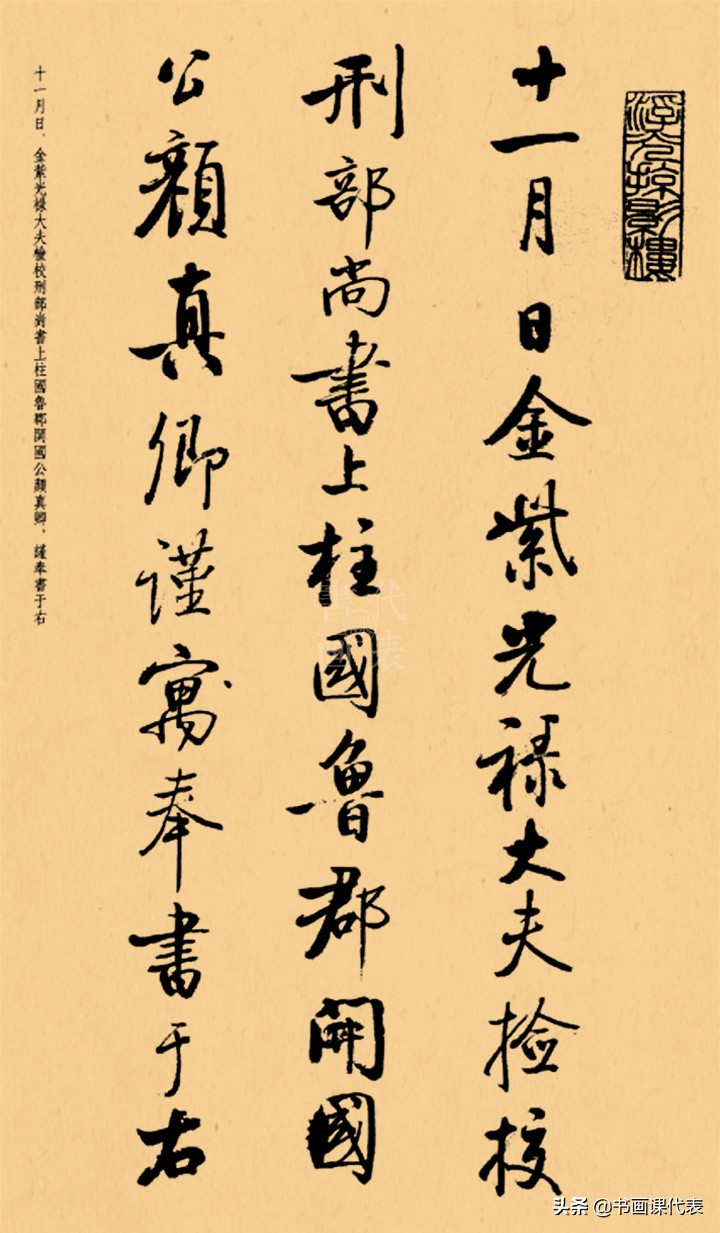 浮光掠影樓
十一月日金紫光禄大夫捡挍
刑部尚書上柱國魯郡開國
公顏真卿謹寓奉書于右
十一月日,金紫光祿大夫檢校刑部尚書上柱國魯郡開國公顏真卿,謹奉書于右
头条 @书画课代表